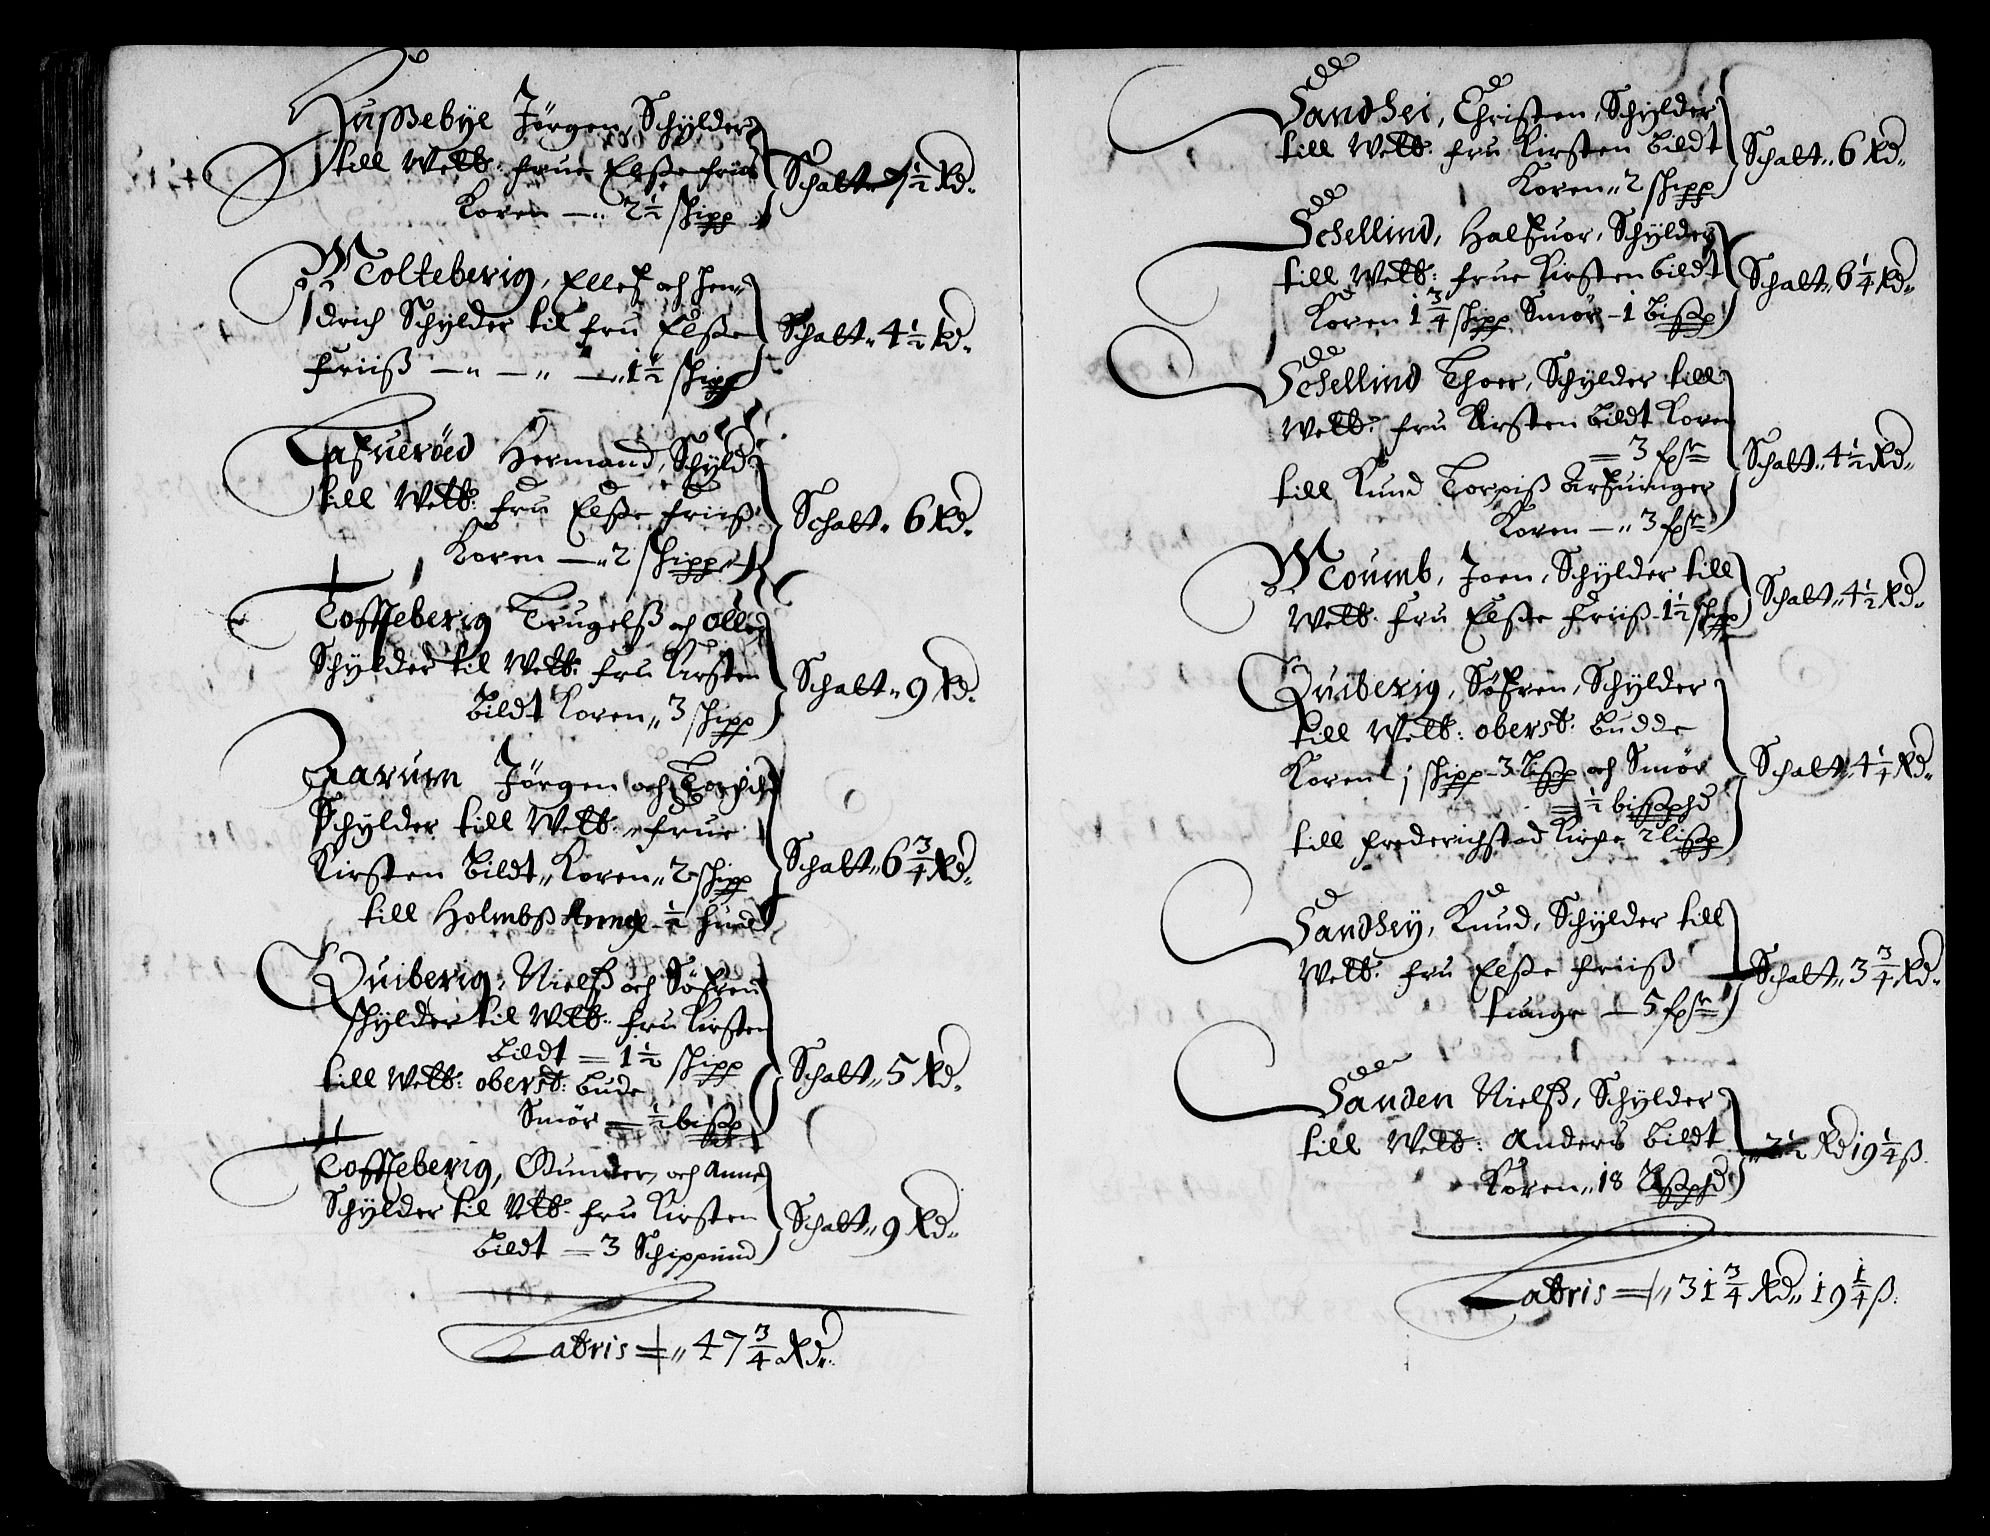 Hussebÿe Jörgen, Schÿlder
till Welb: frue Elsse friis
Koren — „ 2 1/2 schipp
Schatt„ 7 1/2 Rd„
Molteberig, Ellef och Hen„
drich Schÿlder til fru Elsse
friiss — „ — „ — „ 1 1/2 schipp
Schatt„ 4 1/2 Rd„
Hermand, Schÿld:
till Welb: fru Elsse friiss
Koren — „ 2 schipp„
Schatt„ 6 Rd„
Toffteberig Trugelss och Olle
Schÿlder til Welb: fru Kirsten
Bildt Koren„ 3 schipp
Schatt„ 9 Rd„
Aarum Jörgen och
Schÿlder till Welb: frue
Kirsten Bildt„ Koren„ 2 schipp
till Holmbss - 1/2 Hud
Schatt„ 6 3/4 Rd„
Quiberig, Nielss och Söfren
schÿlder til Welb: fru Kirsten
Bildt = 1 1/2 schipp
till Welb: oberst: Bude
Smör = 1/2 bissp
Schatt„ 5 Rd„
Toffteberig, Gunder, och Anne
Schÿlder til Velb: fru Kirsten
Bildt = 3 Schippund
Schatt„ 9 Rd„
Latris = „ 47 3/4 Rd„
Sandhei, Christen, Schÿlder
till Welb: fru Kirsten Bildt
Koren„ 2 schipp
Schatt„ 6 Rd„
Schellind, Halfuor, Schÿlder
till Welb: frue Kirsten Bildt
Koren 1 3/4 schipp Smör - 1 Bissp
Schatt„ 6 1/4 Rd„
Schellind Thoer, Schÿlder till
Welb: fru Kirsten Bildt Koren
= 3 fspr
till Knud Torpiss Arfuinger
Koren — „ 3 fspr
Schatt„ 4 1/2 Rd„
Moumb, Joen, Schÿlder till
Welb: fru Elsse Friiss - 1 1/2 schipp
Schatt„ 4 1/2 Rd„
Quiberig, Söfren, Schÿlder
till Welb: oberst: Budde
Koren j schipp - 3 lissp och Smör
= 1/2 bissphd
till frederichstad Kirche 2 lissp
Schatt„ 4 1/4 Rd„
Sandheÿ, Knud, Schÿlder till
Welb: fru Elsse friiss
tunge — 5 fspr
Schatt„ 3 3/4 Rd„
Sanden Nielss, Schÿlder
till Welb: Anders Bildt
Koren„ 18 Lisspd
„ 2 1/2 Rd 19 1/4 ss.
Latris = „ 31 3/4 Rd„ 19 1/4 ss: